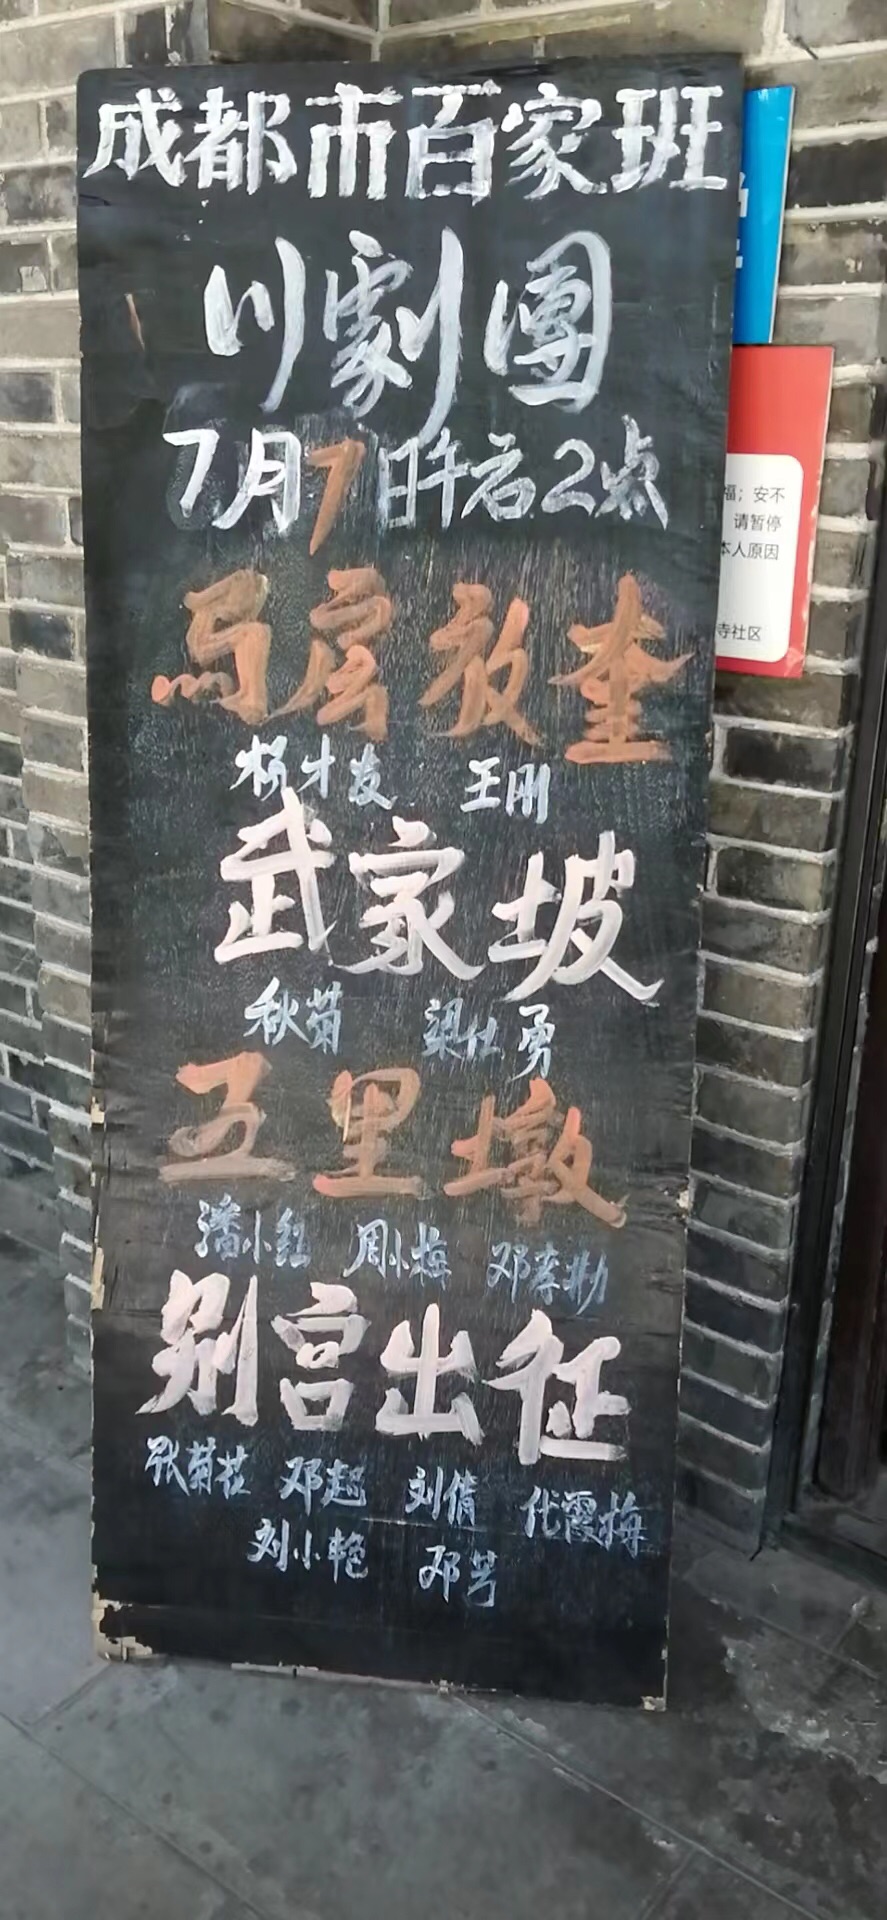 成都市百家班
川劇團
7月7日午后2点
马房放奎
杨才友 王刚
武家坡
秋菊 梁仕勇
五里墩
潘小红 周小梅 邓孝勤
别宫出征
张菊花 邓超 刘倩 代霞梅
刘小艳 邓芳
福；安不
请暂停
本人原因
寺社区